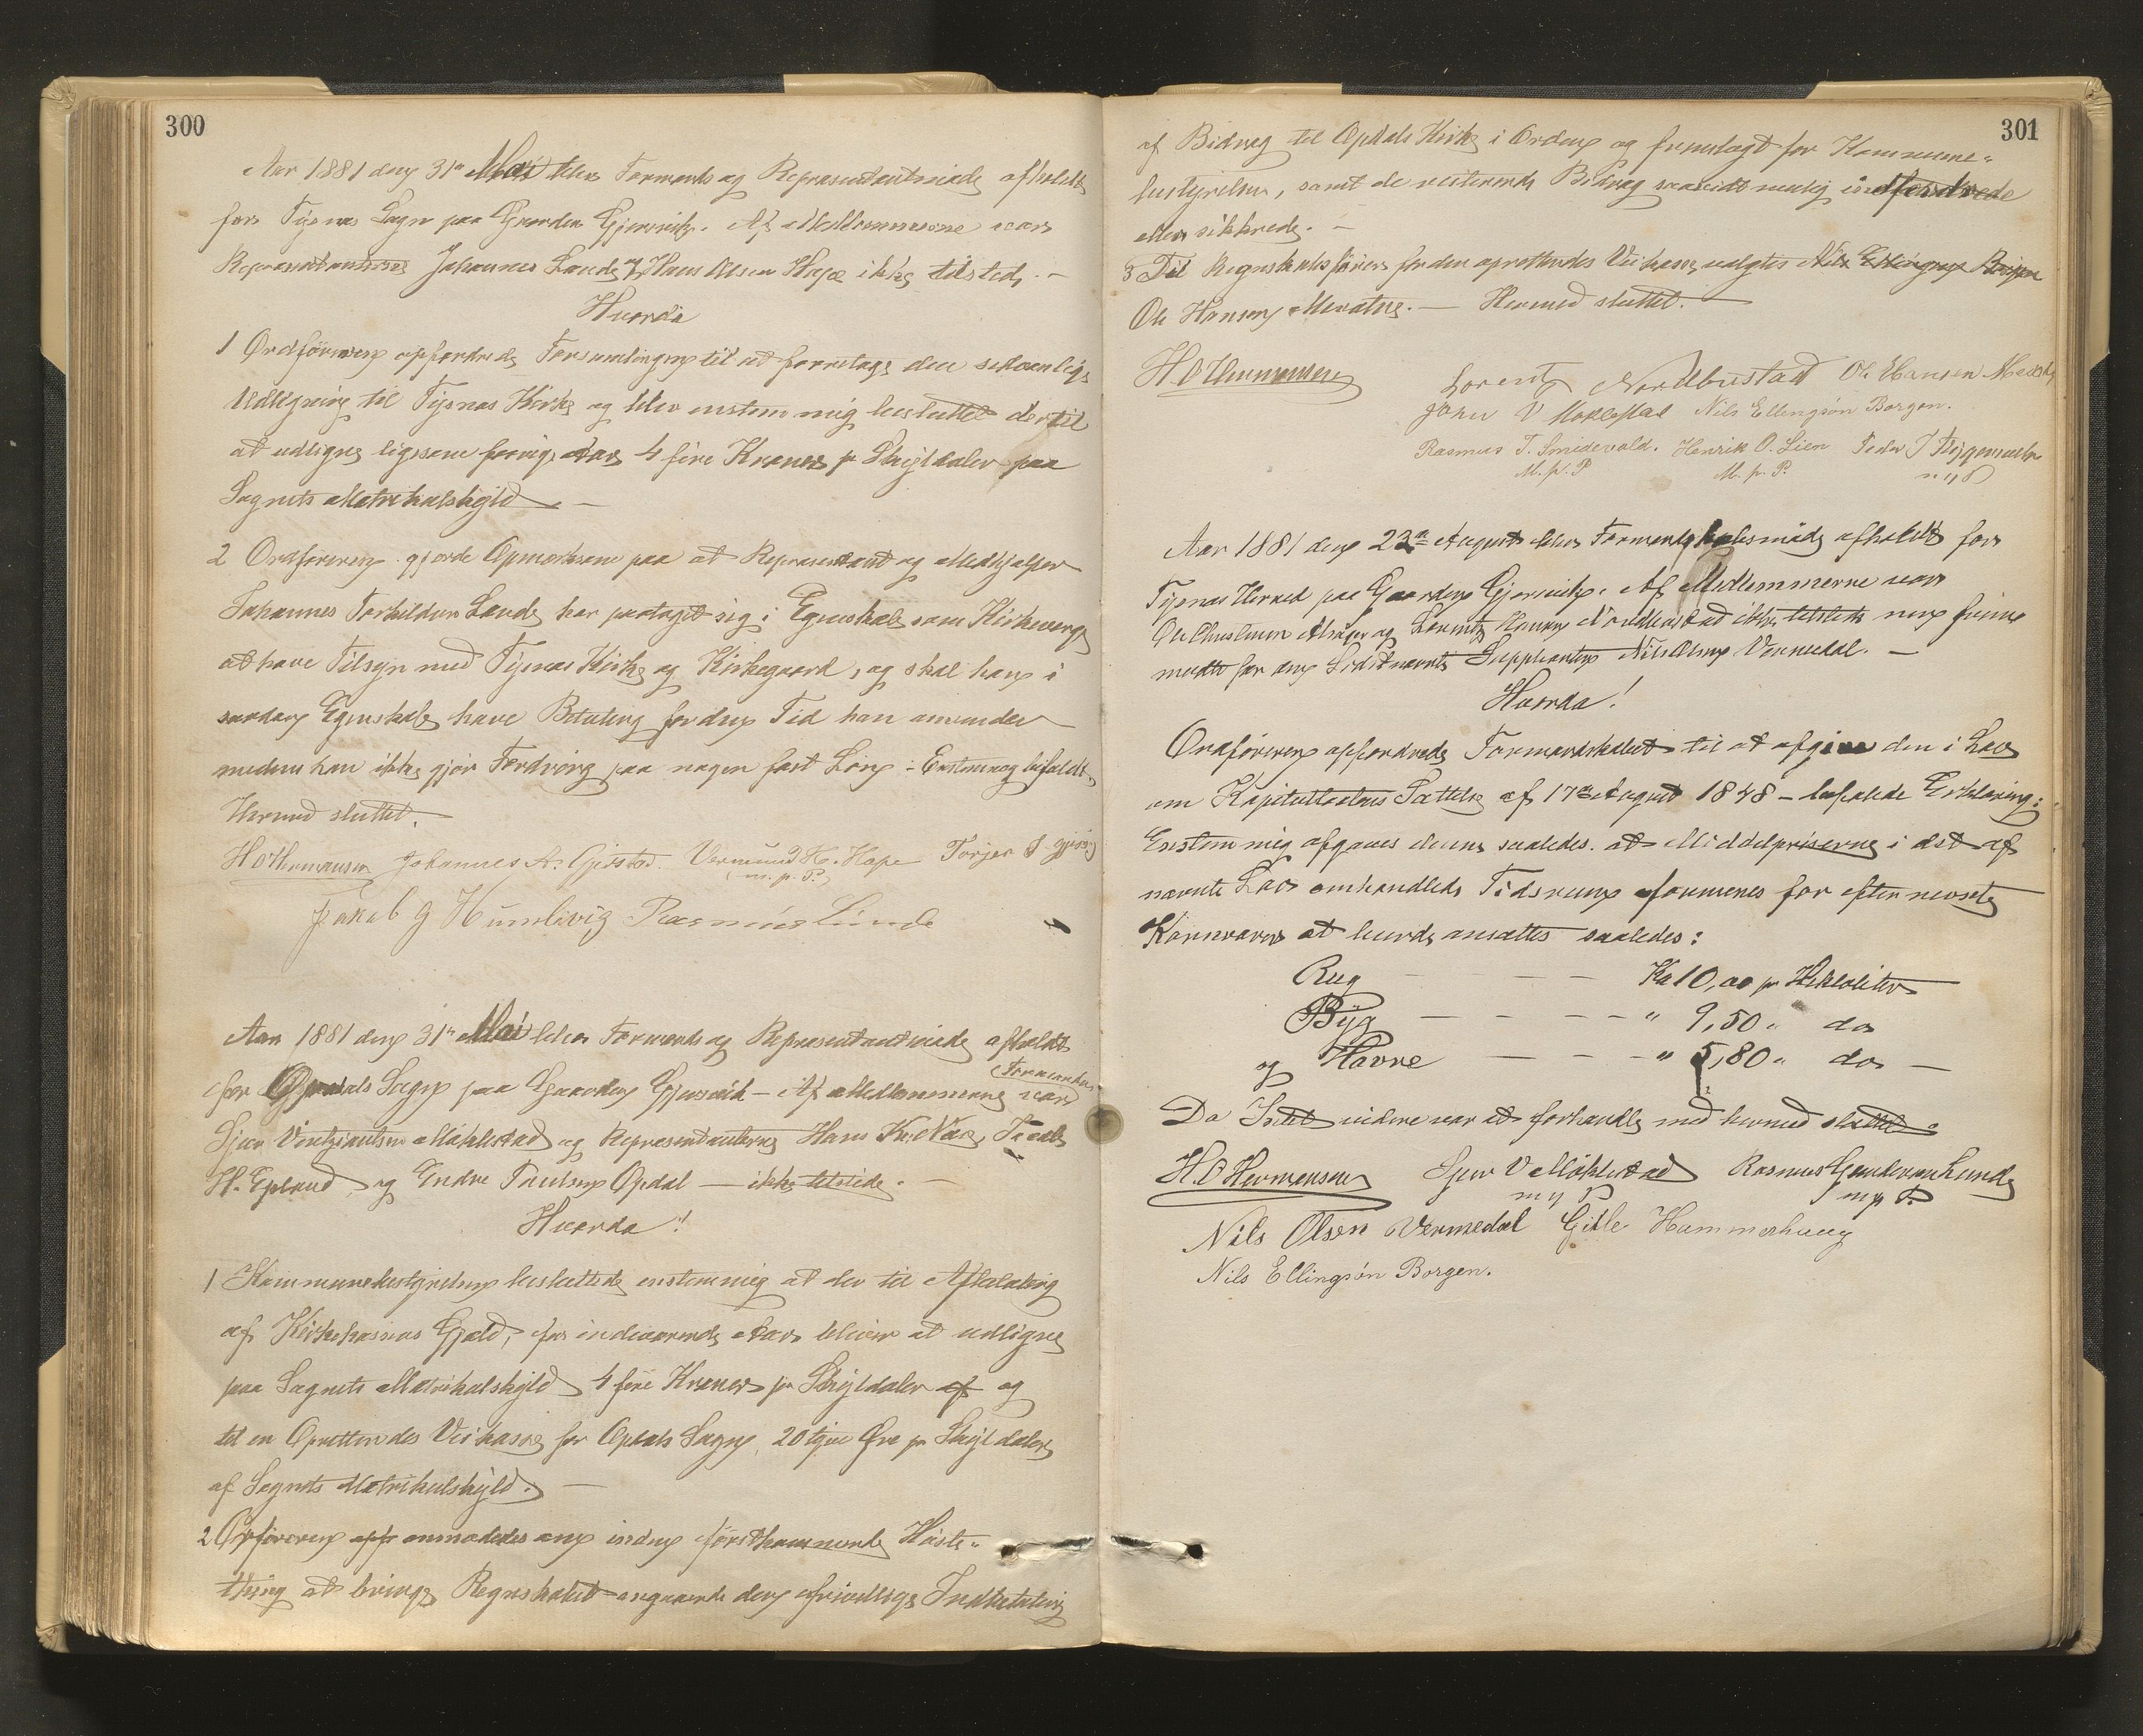 300
Aar 1881 den 31te Mai blev Formands og Repræsentantmøde afholdt
for Tysnæs Sogn paa Gaarden Gjersvik. Af Medlemmerne var
Repræsentanterne Johannes Lande og Hans Olsen Hope ikke tilstede. –
Hvorda
1 Ordføreren opfordrede Forsamlingen til at foretage den sedvanlige
Udligning til Tysnæs Kirke og blev enstemmig besluttet dertil
at udlignes ligesom forrige Aar 4 fire Kroner pr Skyldaler paa
Sognets Matrikulskyld –
2 Ordføreren gjorde Opmerksom paa at Repræsentant og Medhjælper
Johannes Torkildsen Lande har paataget sig i Egenskab som Kirkeverge
at have Tilsyn med Tysnæs Kirke og Kirkegaard, og skal han i
saadan Egenskab have Betaling for den Tid han anvender
medens han ikke gjør Fordring paa nogen fast Løn – Enstemmig bifaldt.
Hermed sluttet.
H O Hermansen Johannes A. Gjerstad. Vermund H. Hope Torjer S
m. p. P.
Jakob G Humlevig Rasmus Lunde
Aar 1881 den 31te Mai blev Formands og Repræsentantmøde afholdt
for Opdals Sogn paa Gaarden Gjersvik – Af Medlemmerne var Formændene
Sjur Vintzjansen Møklestad og Repræsentanterne Hans K. Næs,
H. Epland og Endre Paulsen Opdal – ikke tilstede. –
Hvorda!
1 Kommunebestyrelsen besluttede enstemmig at der til Afbetaling
af Kirkekassens Gjæld, for indeværende Aar bliver at udlignes
paa Sognets Matrikulskyld 4 fire Kroner pr Skyldaler af og
til en Oprettendes Veikasse for Opdals Sogn, 20 tyve Øre pr Skyldaler
af Sognets Matrikulskyld. –
2 Orføreren opf anmodedes om inden førstkommende Høste-
thing at bringe Regnskabet angaaende den frivillige Indbetaling
301
af Bidrag til Opdals Kirke i Orden og fremlagt for Kommune-
bestyrelsen, samt de resterende Bidrag saavidt mulig indfordrede
eller sikkrede. –
3 Til Regnskabsfører for den oprettendes Veikasse valgtes Nils Ellingsen Borgen
Ole Hansen Mevatne. – Hermed sluttet. –
H. O Hermansen Lorentz Nordbustad Ole Hansen
Sjur V Møklestad Nils Ellingsòn Borgen.
Rasmus T. Smidevold. Henrik O. Lien Peder T Flygensvær
M. p. P M. p. P.
Aar 1881 den 23de August blev Formandskabsmøde afholdt for
Tysnæs Herred paa Gaarden Gjersvik. Af Medlemmerne var
Ole Christensen og Lorentz Henrik Nordbustad ikke tilstede men
mødte for den Sidstnævnte Suppleanten Nils Olsen Vermedal. –
Hvorda!
Ordføreren opfordrede Formandskabet til at afgive den i Lov
om Kapitelstaxters Sættelse af 17de August 1848 – befalede Erklæring:
Enstemmig afgaves denne saaledes. at Middelpriserne i det af
nævnte Lov omhandlede Tidsrum formenes for efternevnte
Kornvarer at burde ansættes saaledes:
Rug – – – – Kr 10,00 pr Hektoliter
Byg – – – – " 9,50 " do
og Havre – – – " 5,80 " do –
Da Intet videre var at forhandle med hermed sluttet.
H. O Hermansen Sjur V Møklestad Rasmus Lunde
m p P m p P.
Nils Olsen Vermedal Gitle Hammerhaug
Nils Ellingsòn Borgen.